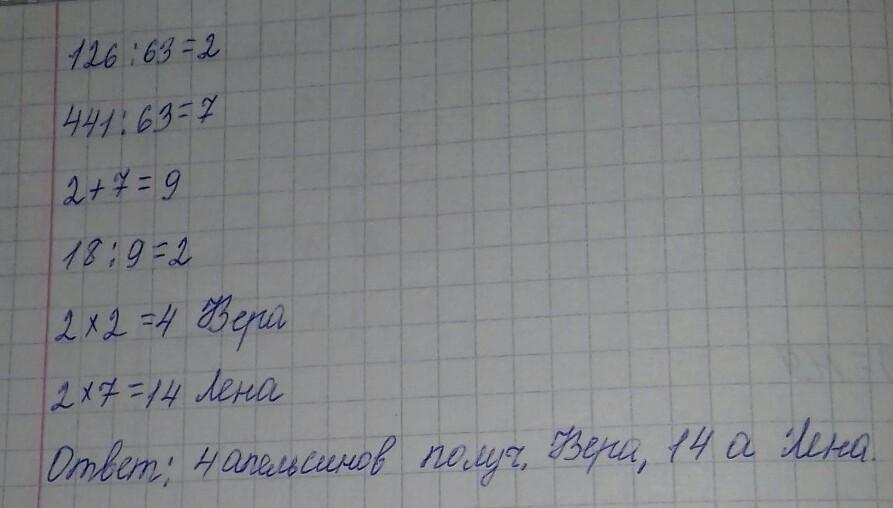 126:63=2
441:63=7
2+7=9
18:9=2
2×2=4 Вера
2×7=14 Лена
Ответ: 4 апельсинов получ. Вера, 14 а Лена.